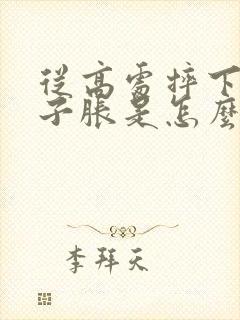 從高處摔下
子脹是怎麼
李拜天